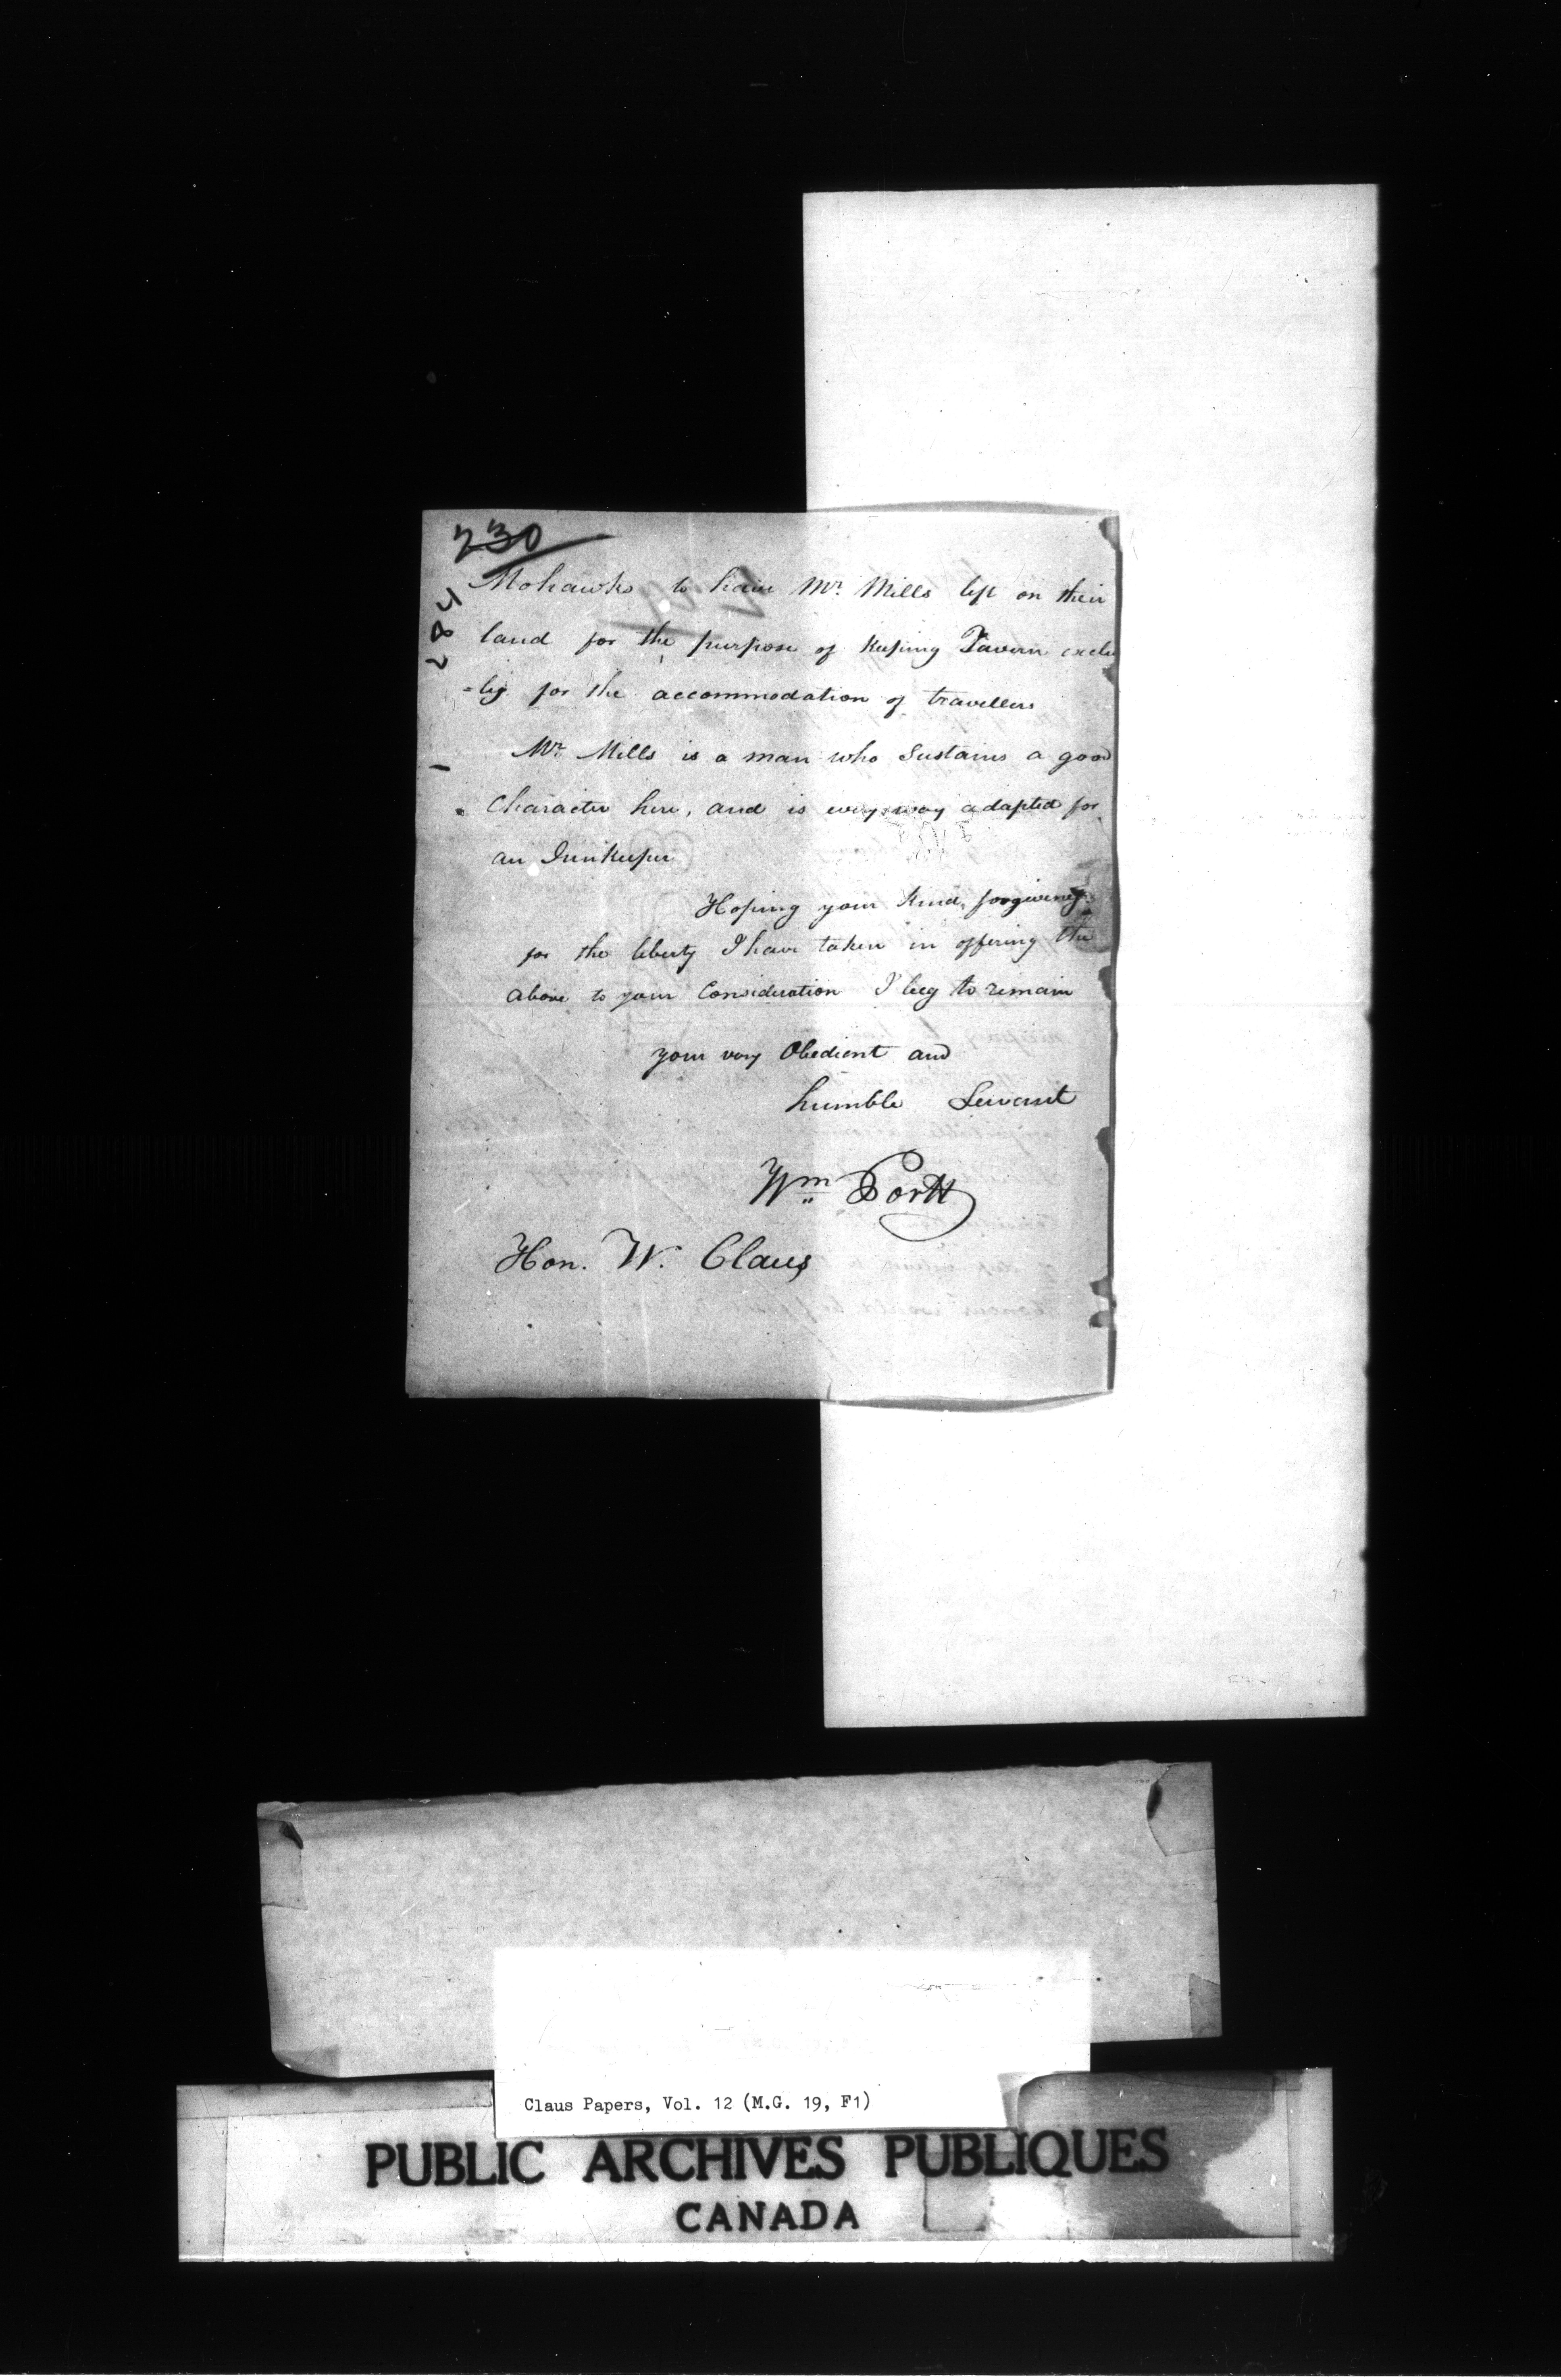 230
284
Mohawks to have Mr. Mills left on their
land for the purpose of Keeping Tavern exclu
=ly for the accommodation of travellers
Mr. Mills is a man who Sustains a good
Character here, and is every way adapted for
an Innkeeper
Hoping your kind
for the liberty I have taken in offering the
above to your Consideration I beg to remain
your very Obedient and
humble Servant
Wm Portt
Hon. W. Claus
Claus Papers, Vol. 12 (M.G. 19, F1)
PUBLIC ARCHIVES PUBLIQUES
CANADA